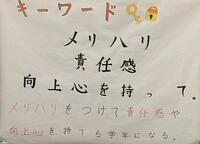 キーワード
メリハリ
責任感
向上心を持って。
メリハリをつけて責任感や
向上心を持てる学年になる。